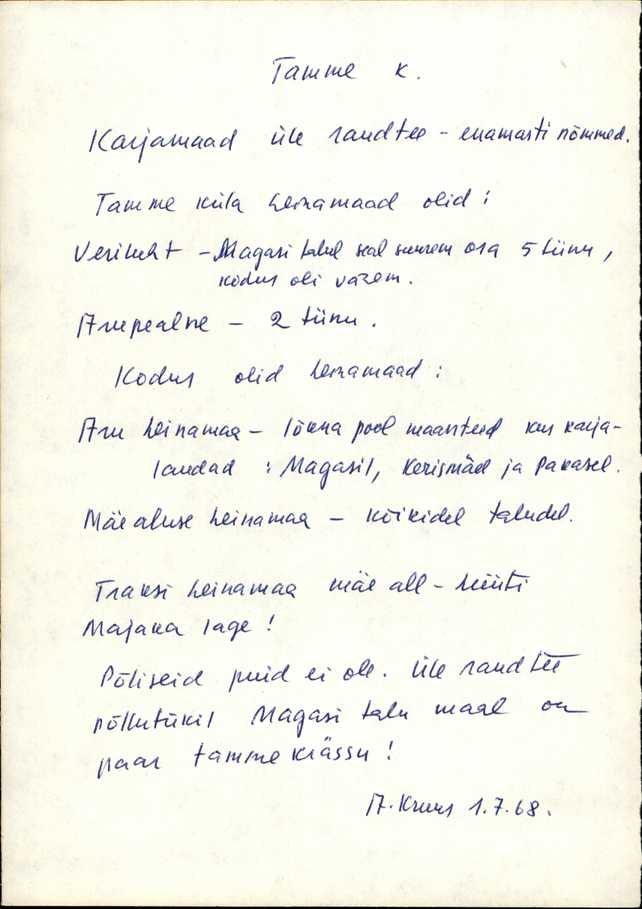 Tamme k.
Karjamaad üle randtee - enamasti nõmmed.
Tamme küla heinamaad olid :
Verileht - Magasi talul seal suurem osa 5 tiinu,
kodus oli vähem.
Arupealne - 2 tiinu.
Kodus olid heinamaad :
Aru heinamaa - lõuna pool maanteed kus karja-
laudad : Magasil, Kerismäel ja Pakasel.
Mäealuse heinamaa - kõikidel taludel.
Traksi heinamaa mäe all - hüüti
Majaka lage !
Põliseid puid ei ole. Üle randtee
põllutükil Magasi talu maal on
paar tamme krässu !
A. Kruus 1.7.68.